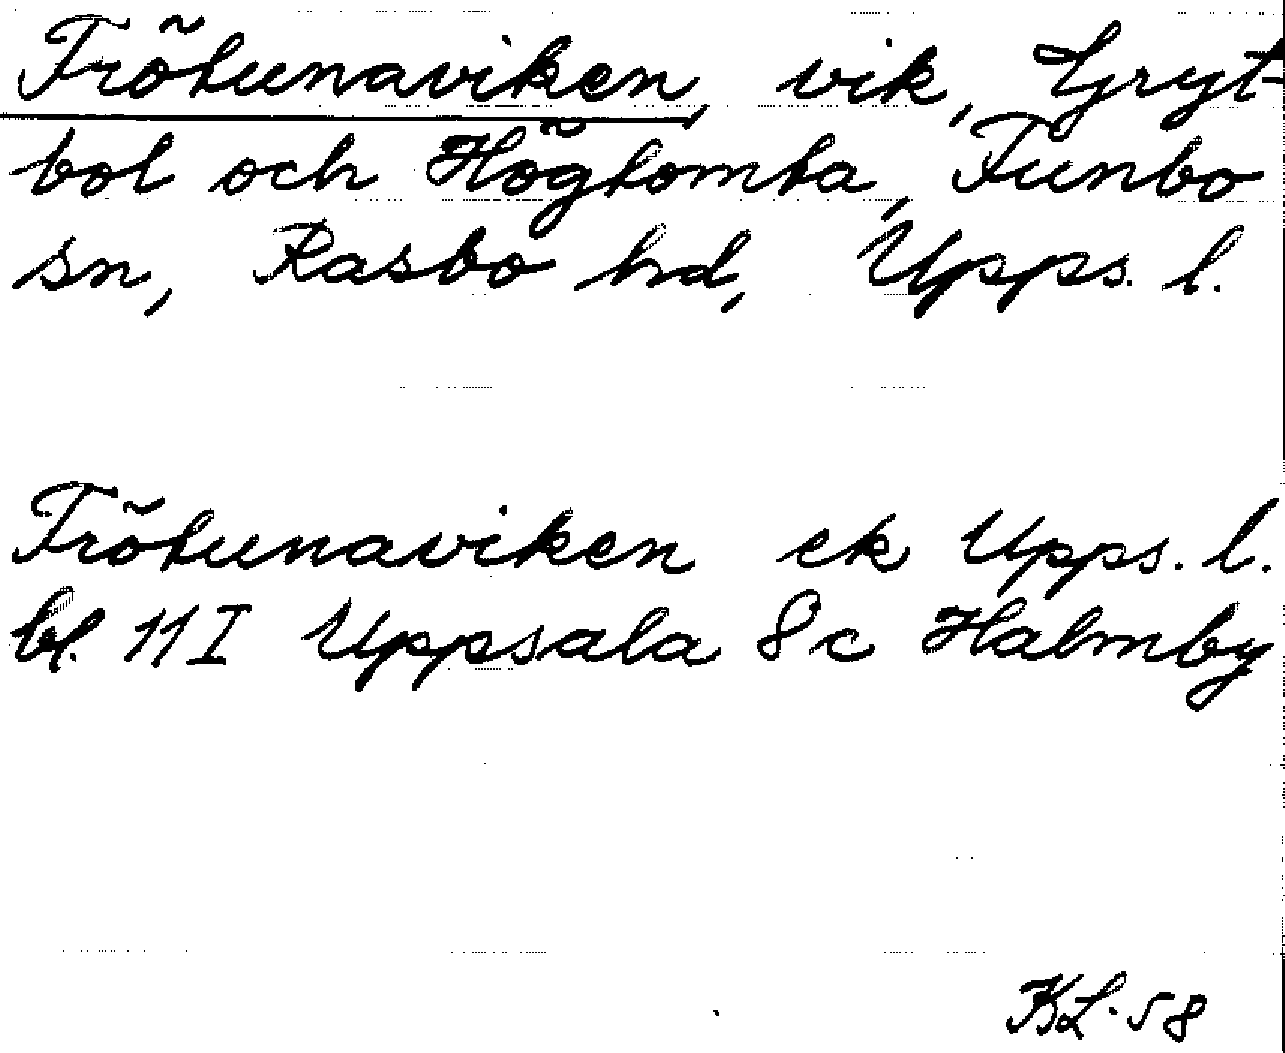 Trötunaviken, vik, Gryt-
bol och Högtomta, Funbo
sn, Rasbo hd, Upps. l.
Trötunaviken ek Upps. l.
bl. 11I Uppsala 8c Halmby
KL-58